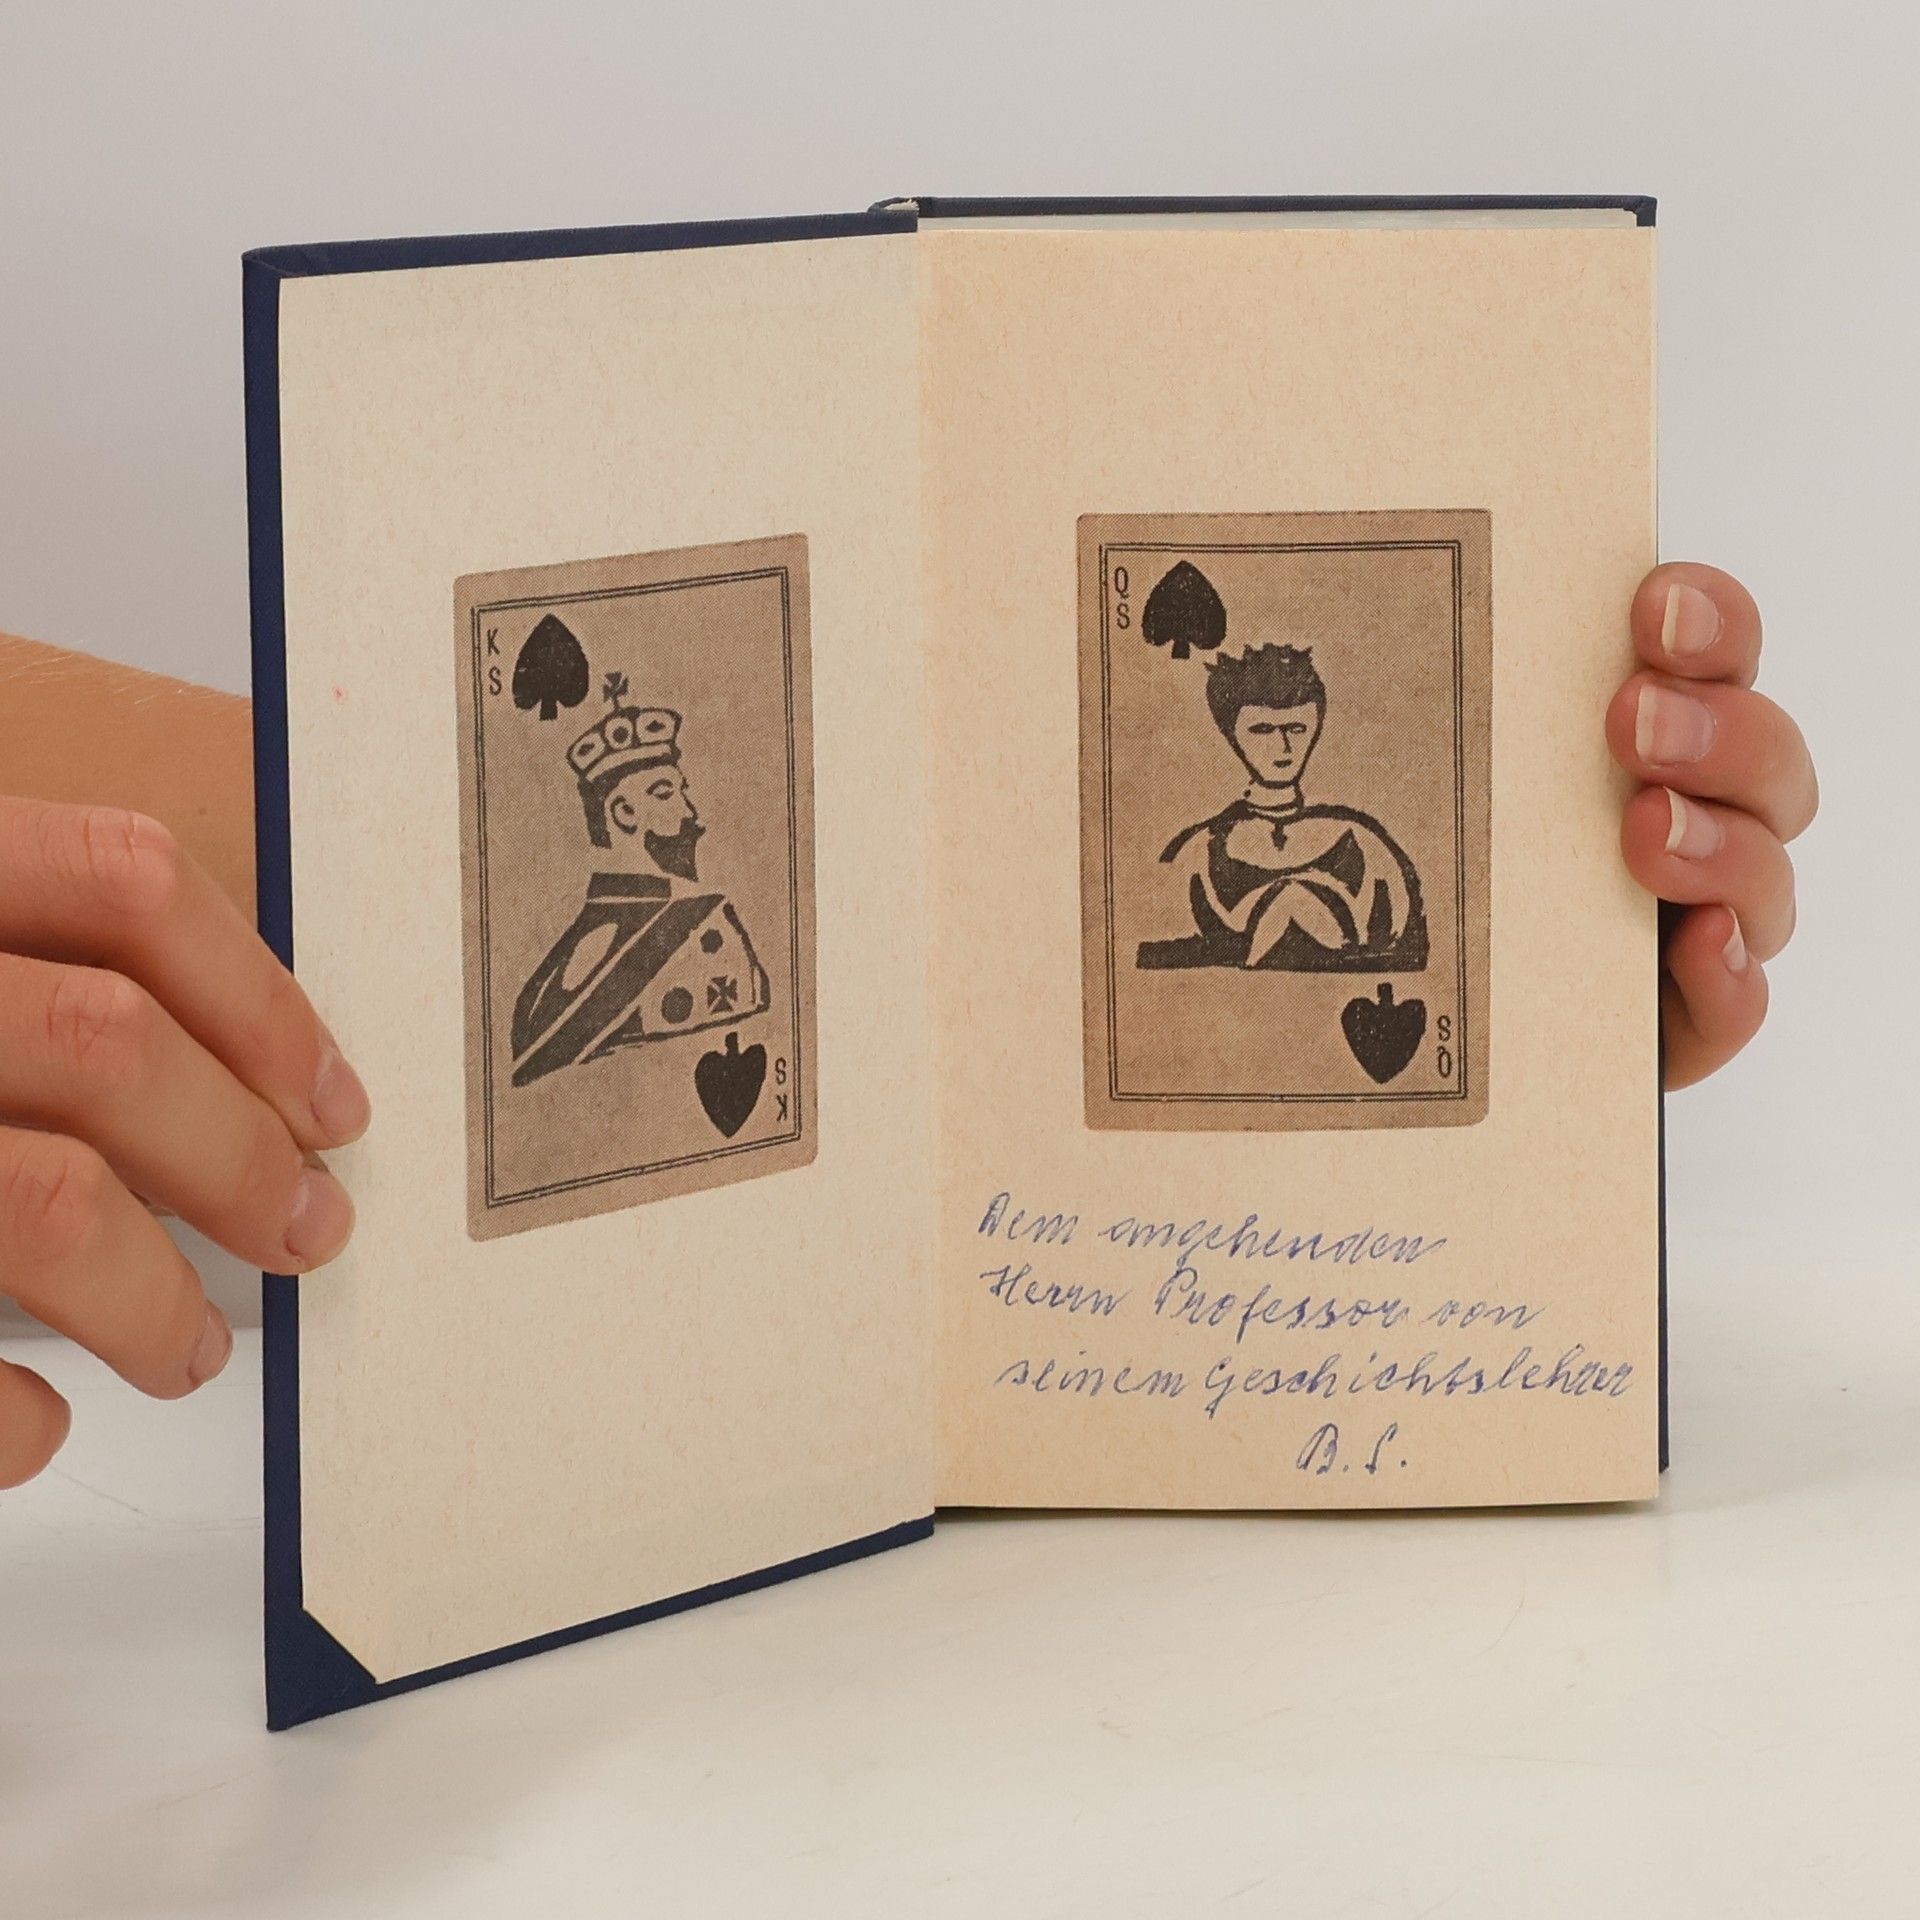 K
S
S
K
Q
S
S
Q
Dem angehenden
Herrn Professor von
seinem Geschichtslehrer
B. S.